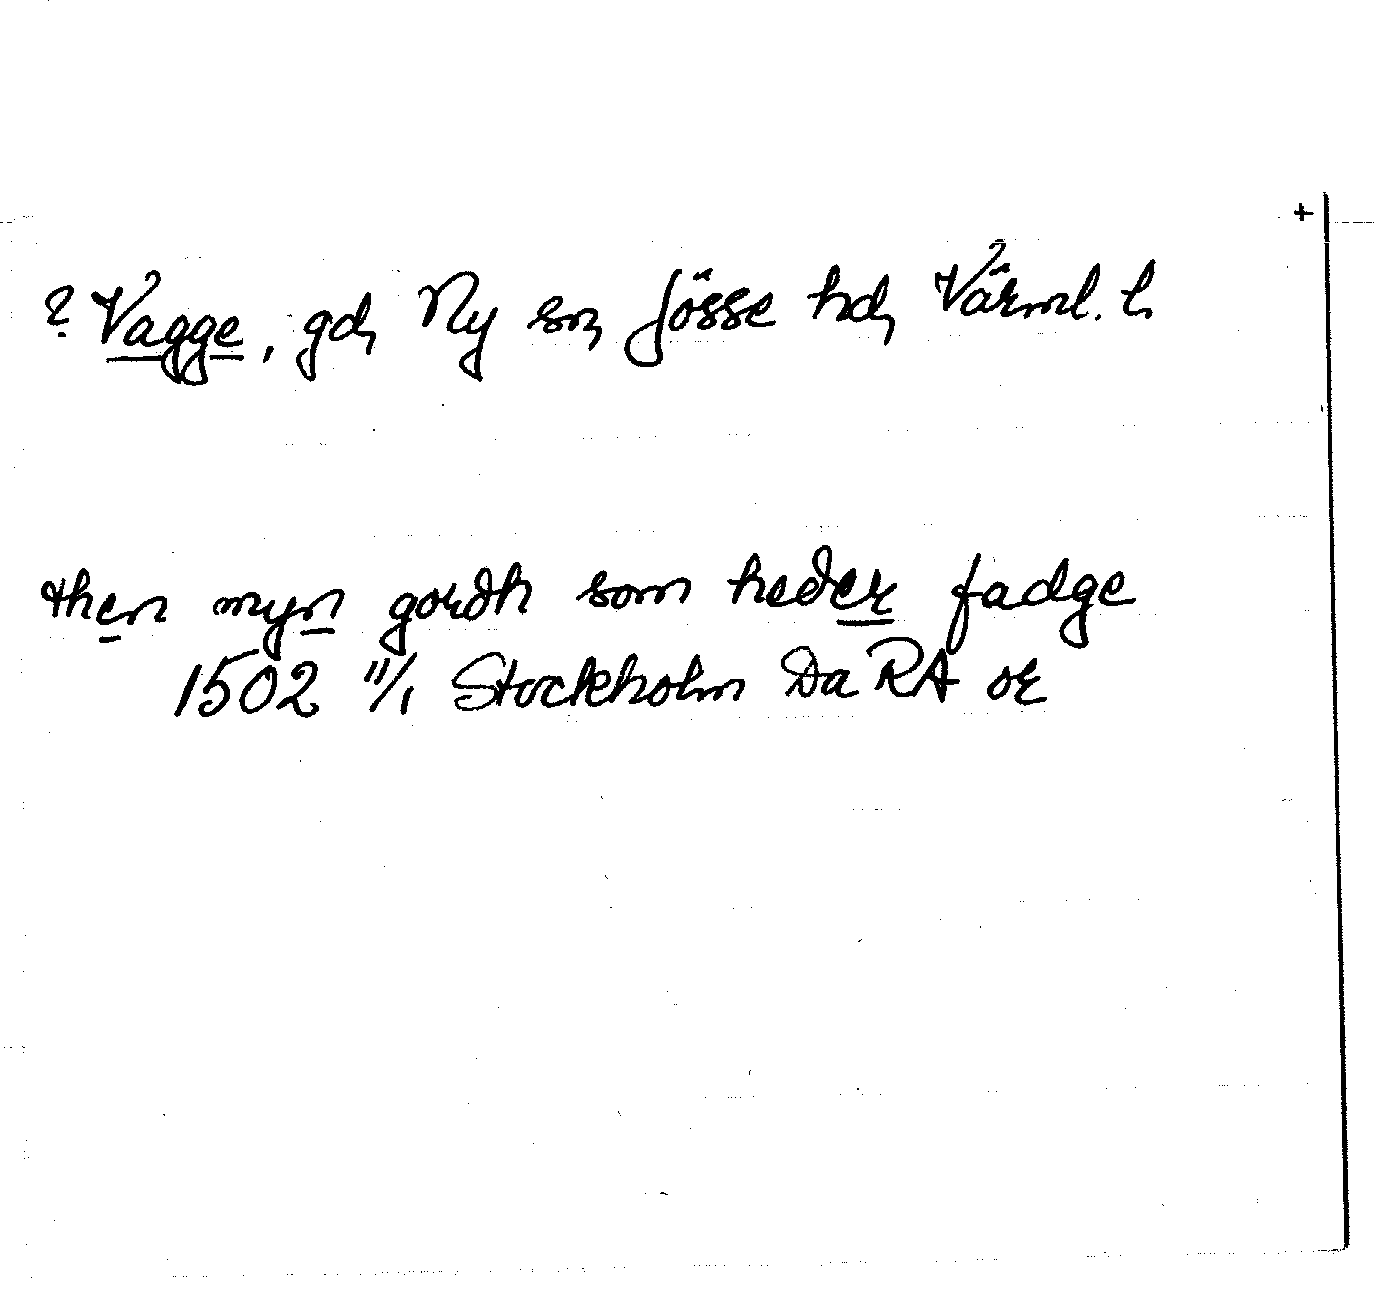 +
? Vagge, gd, Ny sn, Jösse hd, Värml. l.
then myn gordh som heder fadge
1502 11/1 Stockholm Da RA or